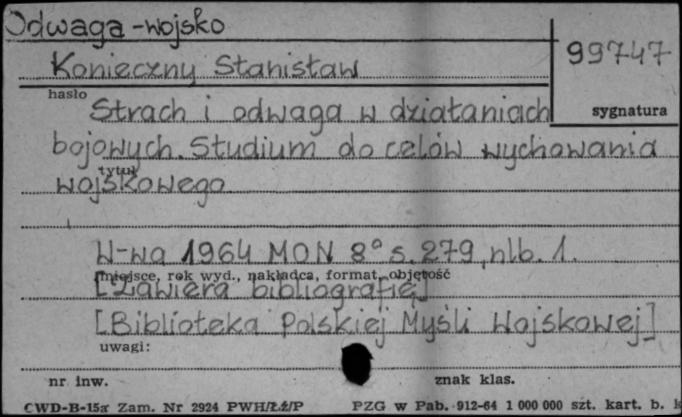 Odwaga-wojsko
99747
Konieczny Stanisław
hasło
Strach i odwaga w działaniach
sygnatura
bojowych. Studium do celów wychowania
tytuł
wojskowego
W-wa 1964 MON 8° s. 279, nlb. 1.
miejsce, rok wyd., nakładca, format, objętość
[Zawiera bibliografię]
[Biblioteka Polskiej Myśli Wojskowej]
uwagi:
nr inw. znak klas.
CWD-B-15a Zam. Nr 2924 PWH/Łź/P PZG w Pab. 912-64 1 000 000 szt. kart. b. k